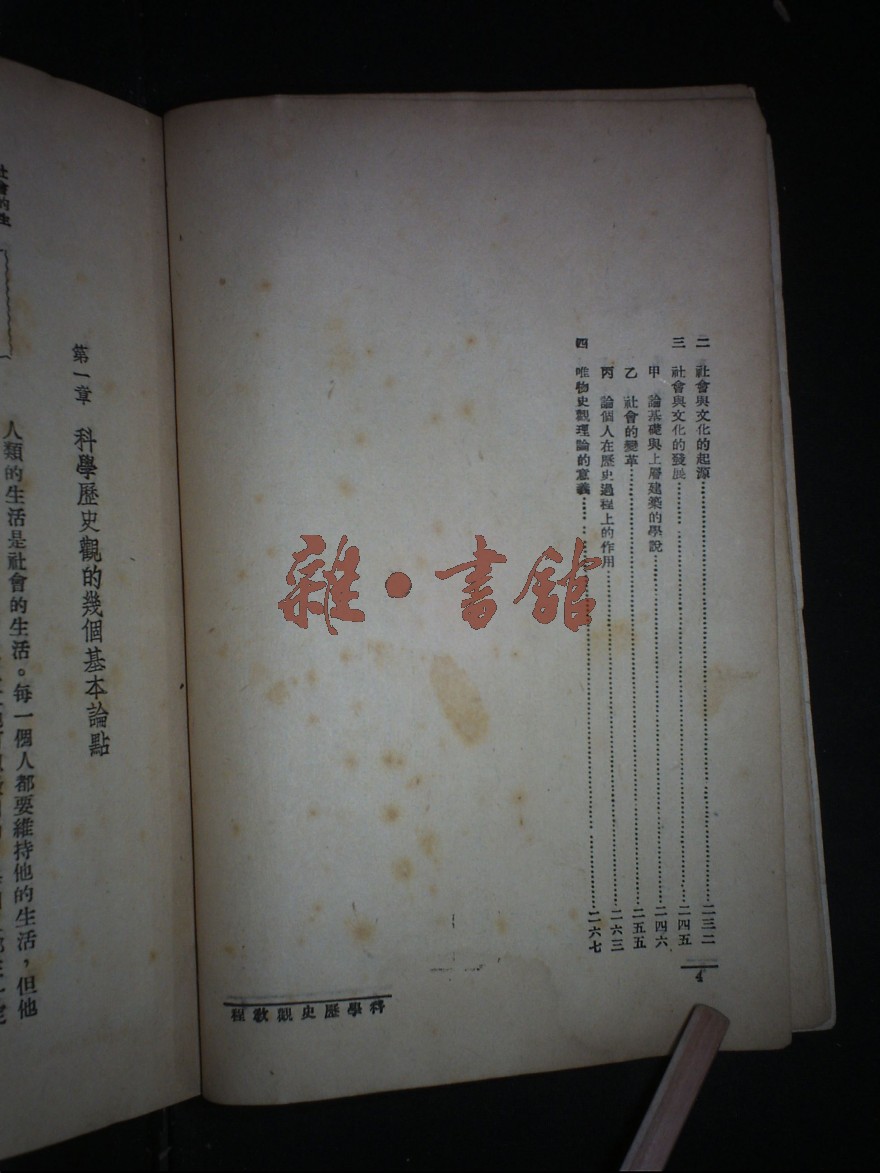 二 社會與文化的起源……二三二
三 社會與文化的發展……二四五
甲 論基礎與上層建築的學說……二四六
乙 社會的變革……二五五
丙 論個人在歷史過程上的作用……二六三
四 唯物史觀理論的意義……二六七
4
科學歷史觀教程
雜·書館
第一章 科學歷史觀的幾個基本論點
人類的生活是社會的生活。每一個人都要維持他的生活，但他
社會的生